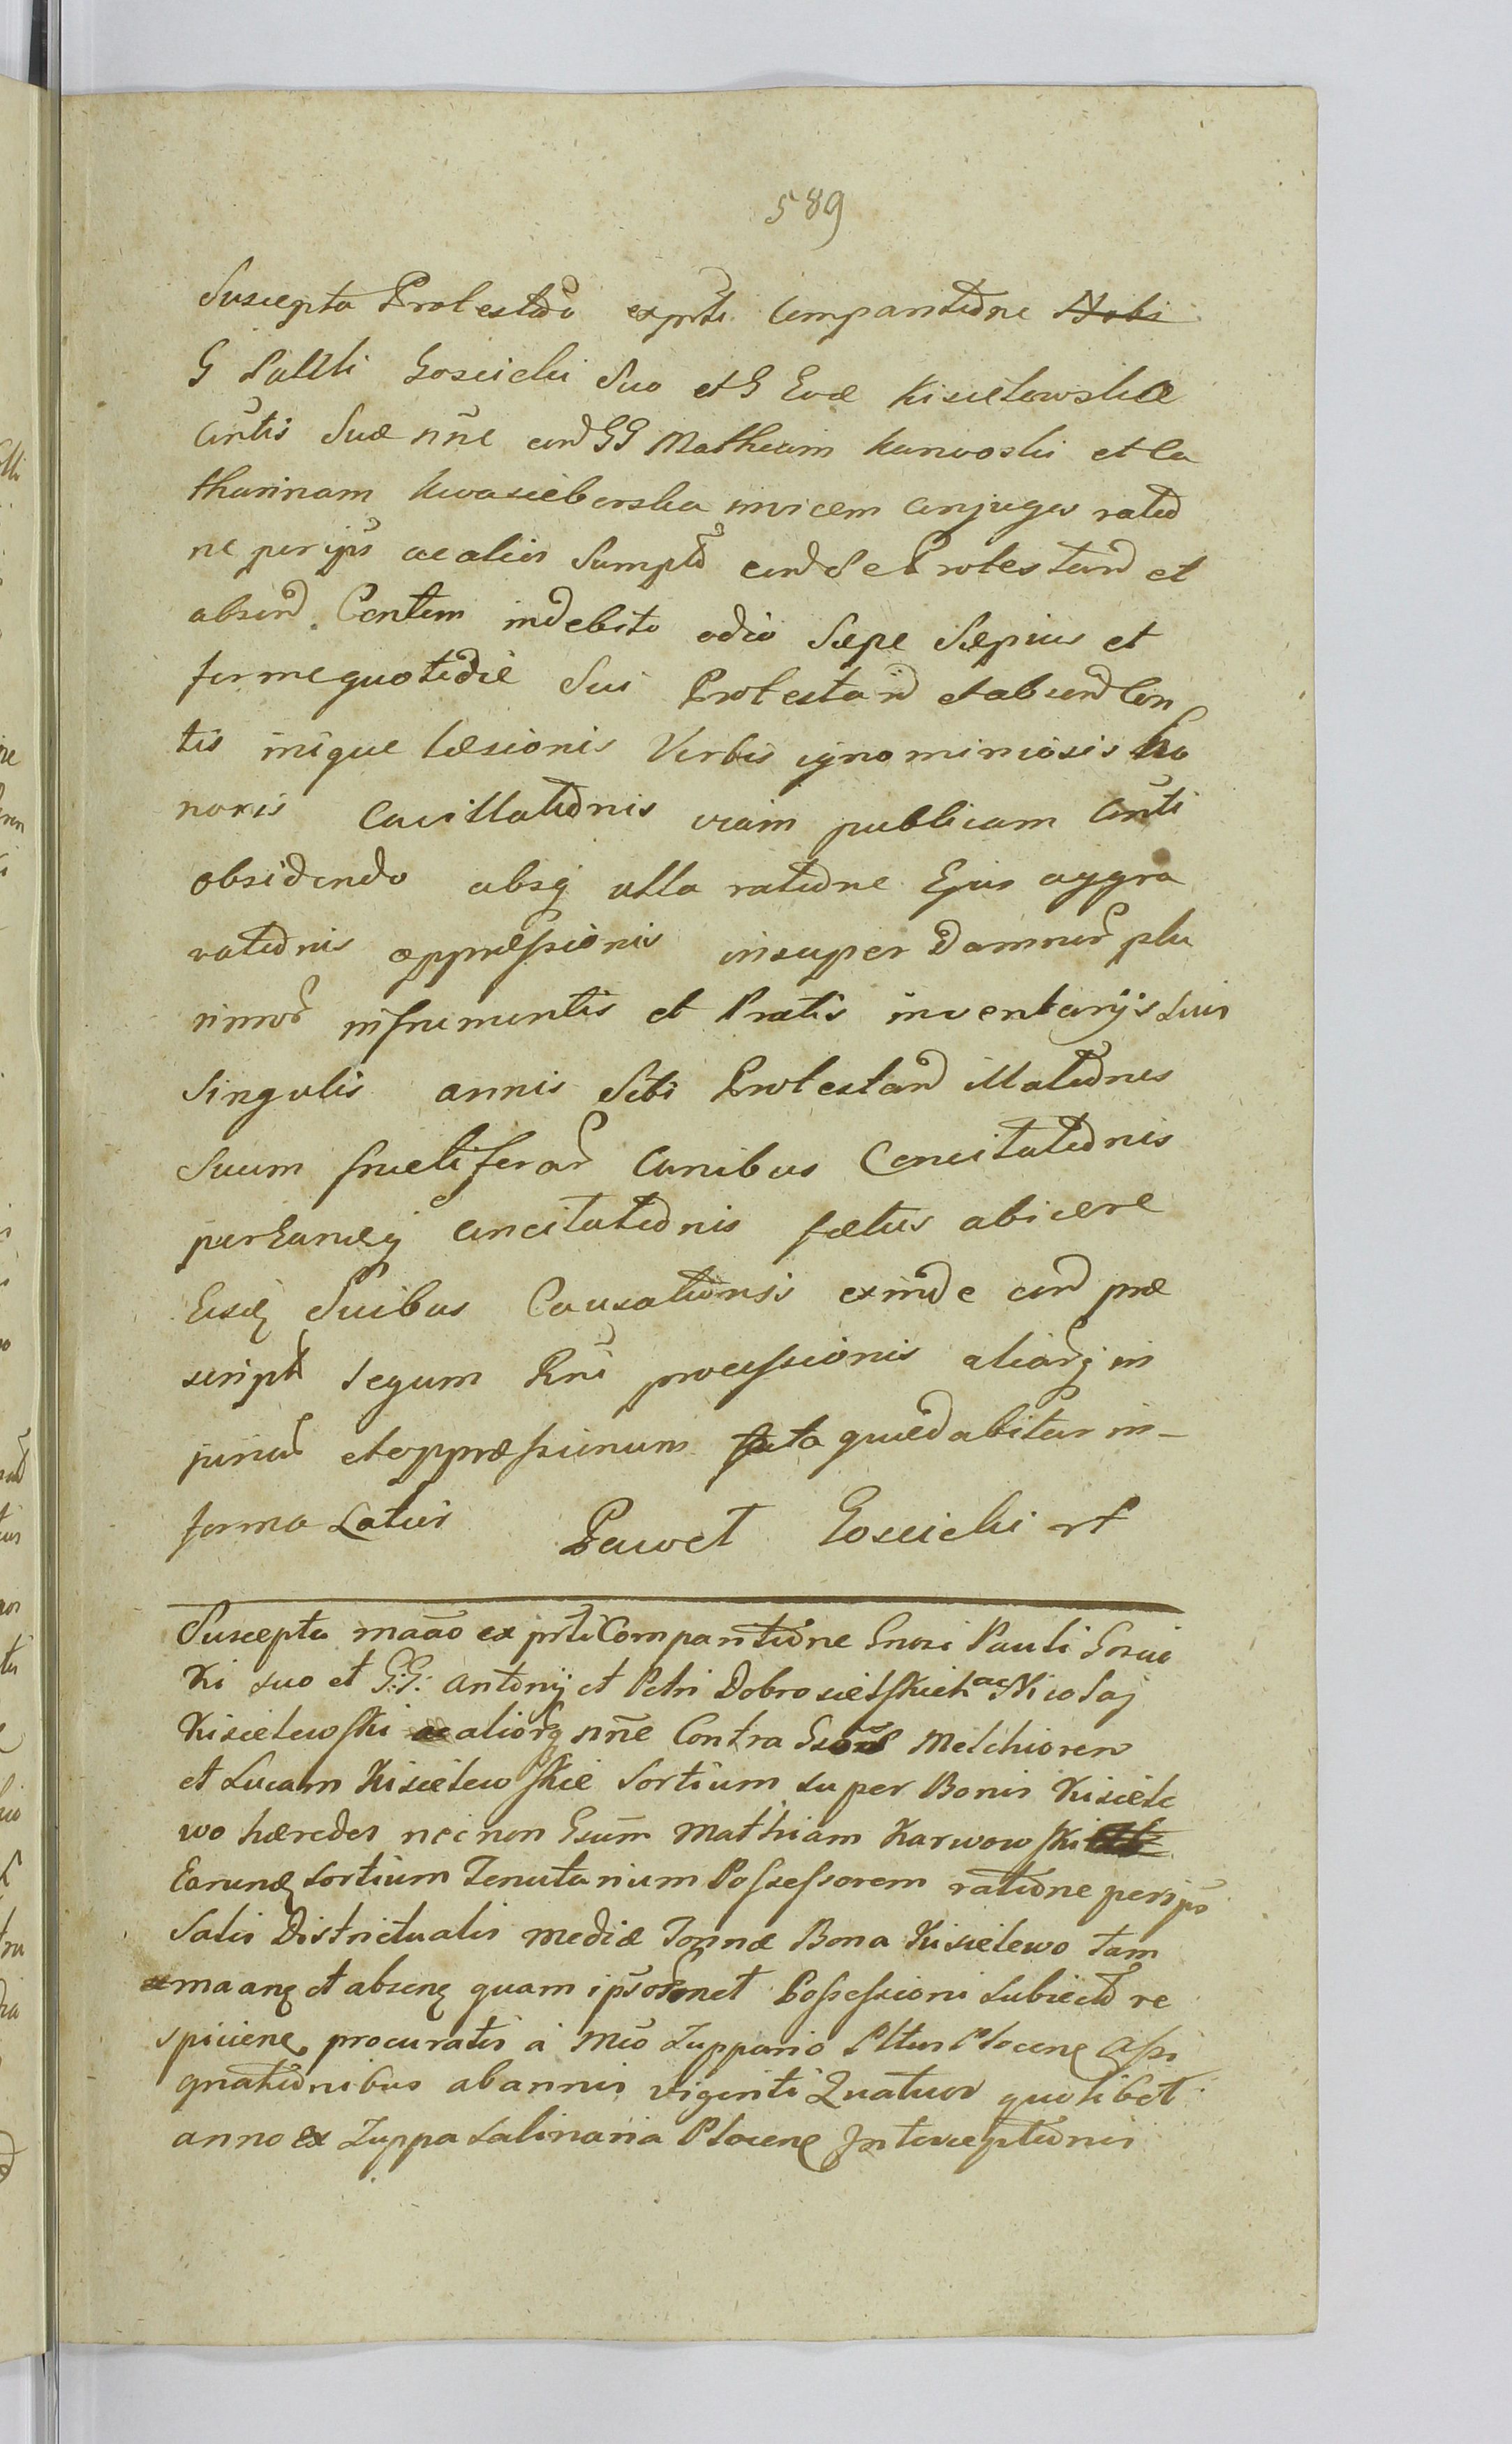 589
Suscepta Protestdo ex prti Comparitdne Nobi
G Pauli Goscicki Suo et G Evæ Kisielewska
Cnrtis Suæ nñe cond GG Mathiam Karwoski et Ca
tharinam Kwasieborska invicem Conjuges ratid
ne per ips ac alios Sumptd cond se Protestand et
absend Contem indebito odio Sæpe Sæpius et
ferme quotidie Sui Protestand et absend Con
tis inique læsionis Verbis ignominiosis ho
noris Cavillatidnis viam publicam Cnrti
obsidendo absq ulla ratidne Ejus aggra
vatidnis oppressionis insuper Damnor plu
rimor in frumentis et Pratis inventarijs suis
Singulis annis Sibi Protestand illatidnes
Suum fructiferar Canibus Concitatidnis
per eamq concitatidnis fœtus abicere
Eisdq Suibus Causationis exinde cond præ
script Legum Rni processionis aliarq in
juriar et oppressionum facta quæ dabitur in-
forma Latius Paweł Goscicki rt
Suscepta maão ex prti Comparitidne Gnosi Pauli Gosci
ki suo et G:G: Antonij et Petri Dobrosielskich ac Nicolaj
Kisielewski ac aliorq nñe Contra Gsos Melchiorem
et Lucam Kisielewskie Sortium super Bonis Kisiele
wo hæredes necnon Gsum Mathiam Karwowski
Earundq sortium Tenutarium Possessorem ratidne per ips
Salis Districtualis mediæ Tonnæ Bona Kisielewo tam
maanq et absenq quam ipsormet Possessioni subiectd re
spicienq procuratis à Mco Zuppario Pltus Plocenq Assi
gnatidnibus ab annis viginti Quatuor quolibet
anno ex Zuppa salinaria Plocenq Interceptidnis